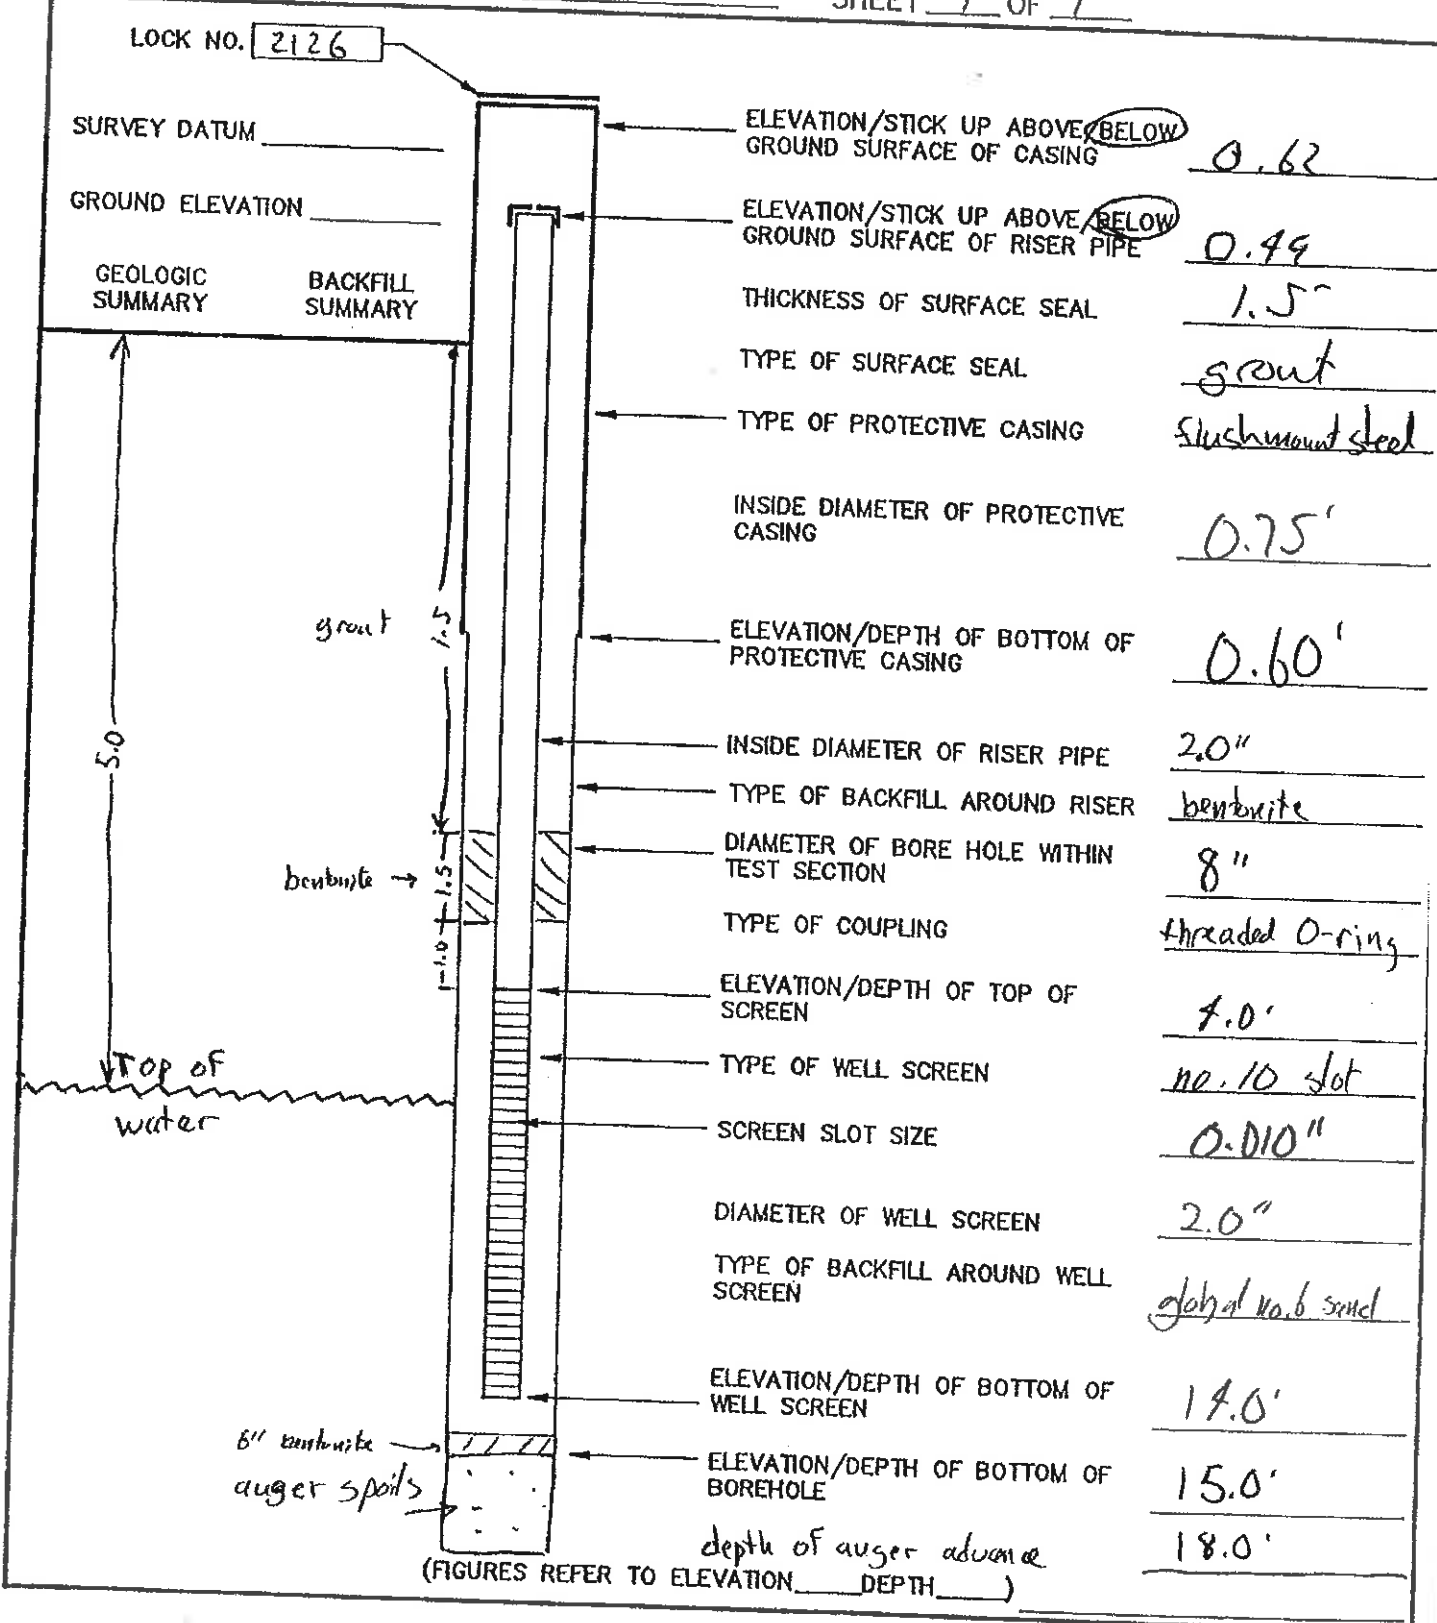 SHEET 1 OF 1
LOCK NO. 2126
SURVEY DATUM
GROUND ELEVATION
GEOLOGIC SUMMARY
BACKFILL SUMMARY
ELEVATION/STICK UP ABOVE/BELOW
GROUND SURFACE OF CASING 0.62
ELEVATION/STICK UP ABOVE/BELOW
GROUND SURFACE OF RISER PIPE
THICKNESS OF SURFACE SEAL 1.5'
TYPE OF SURFACE SEAL grout
TYPE OF PROTECTIVE CASING flushmount steel
INSIDE DIAMETER OF PROTECTIVE
CASING 0.75'
grout 1.5
ELEVATION/DEPTH OF BOTTOM OF
PROTECTIVE CASING 0.60'
5.0
INSIDE DIAMETER OF RISER PIPE 2.0"
TYPE OF BACKFILL AROUND RISER bentonite
bentonite 1.5
DIAMETER OF BORE HOLE WITHIN
TEST SECTION 8"
TYPE OF COUPLING threaded O-ring
1.0
ELEVATION/DEPTH OF TOP OF
SCREEN 4.0'
Top of
water
TYPE OF WELL SCREEN no. 10 slot
SCREEN SLOT SIZE 0.010"
DIAMETER OF WELL SCREEN 2.0"
TYPE OF BACKFILL AROUND WELL
SCREEN global no.6 sand
ELEVATION/DEPTH OF BOTTOM OF
WELL SCREEN 14.0'
6" bentonite
auger spoils
ELEVATION/DEPTH OF BOTTOM OF
BOREHOLE 15.0'
depth of auger advance 18.0'
(FIGURES REFER TO ELEVATION____DEPTH____)